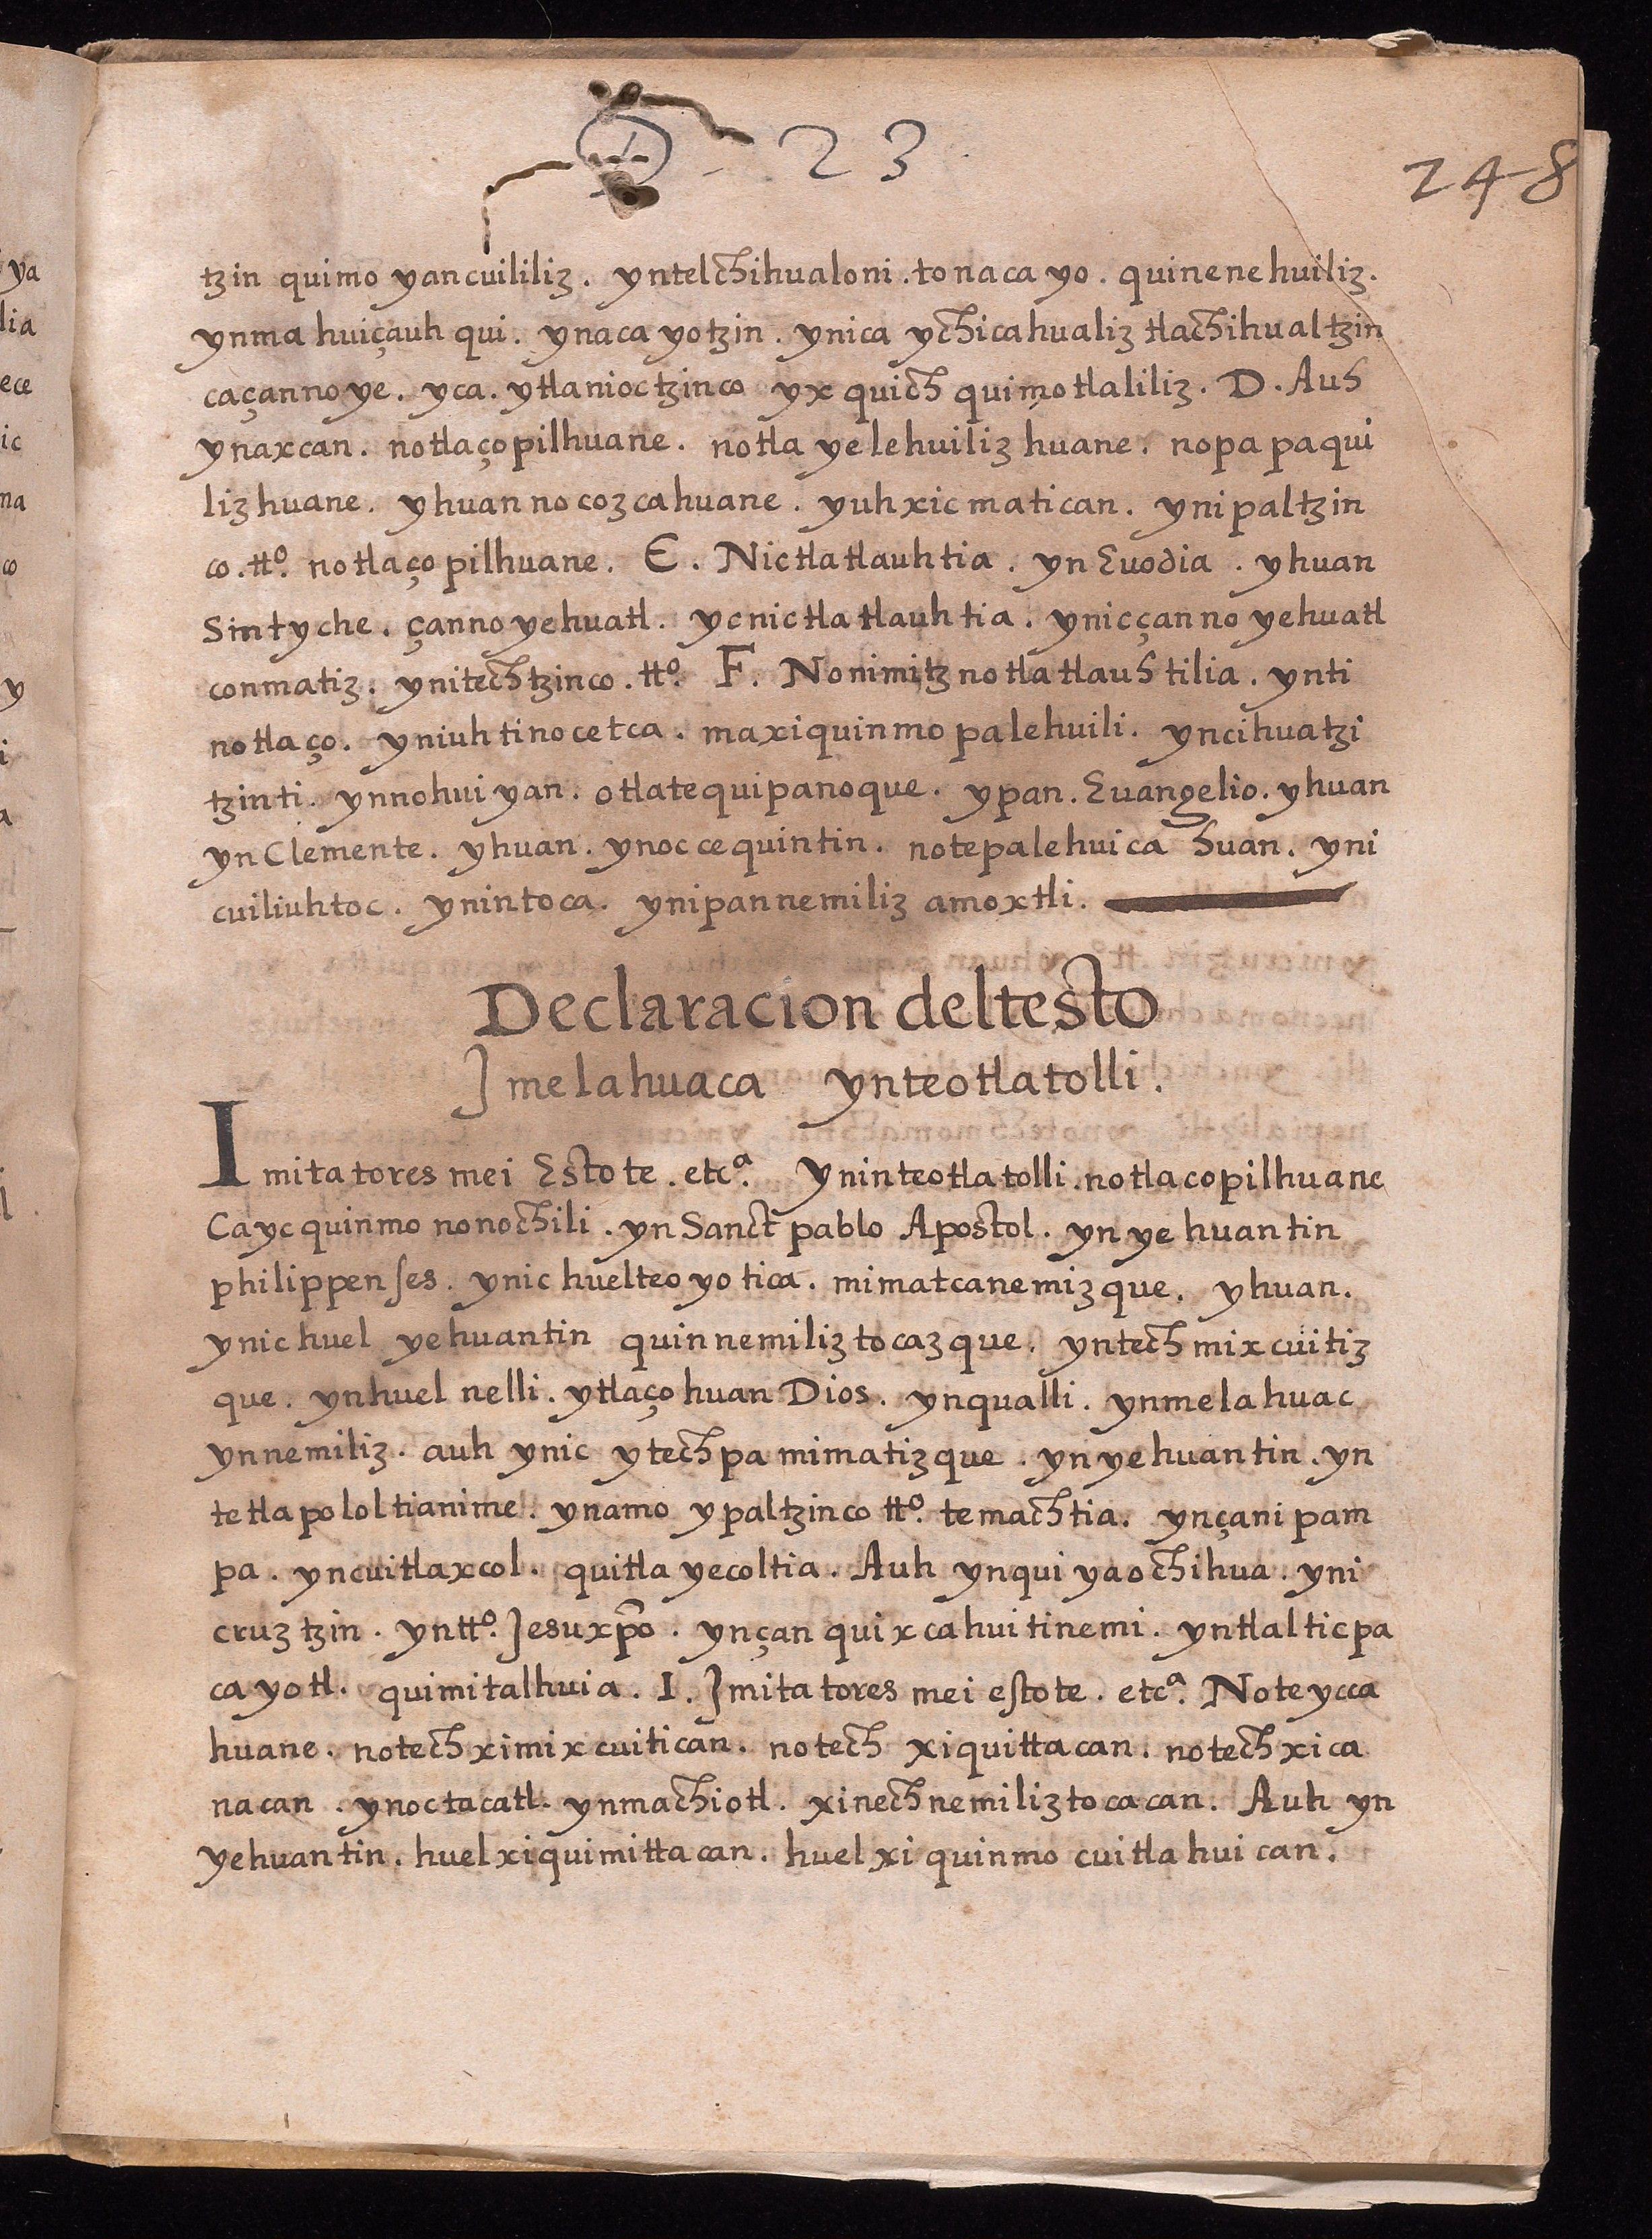 D - 23
248
tzin quimo yancuililiz . yntelchihualoni . to naca yo . quinenehuiliz .
ynma huiçauh qui . ynaca yotzin . ynica ychicahualiz tlachihualtzin
caçannoye . yca . ytlanioctzinco yx quich quimotlaliliz . D . Auh
ynaxcan . notlaçopilhuane . notla yelehuiliz huane . nopa paqui
liz huane . yhuan no cozcahuane . yuh xic matican . yni paltzin
co . tt.º notlaço pilhuane . E . Nictlatlauhtia . yn Euodia . yhuan
Sintyche . çanno yehuatl . yc nictla tlauhtia . ynic çan no yehuatl
conmatiz . ynitechtzinco . tt.º F . Nonimitz no tla tlauh tilia . ynti
notlaço . yniuh tinocetca . maxiquinmo palehuili . yncihuatzi
tzinti . ynnohui yan . otlatequipanoque . ypan . Euangelio . yhuan
yn Clemente . yhuan . ynoc cequintin . notepalehuica huan . yni
cuiliuhtoc . ynintoca . ynipannemiliz amoxtli .
Declaracion deltesto
Jmelahuaca ynteotlatolli .
Imitatores mei Estote . etc.ª Yninteotlatolli . notlacopilhuane
Ca yc quinmo nonochili . yn Sanct pablo Apostol . yn ye huantin
philippenses . ynic huelteo yo tica . mimatcanemizque . yhuan .
ynic huel yehuantin quinnemiliz tocazque . yntech mixcuitiz
que . ynhuel nelli . ytlaço huan Dios . ynqualli . ynmelahuac
ynnemiliz . auh ynic ytechpa mimatizque . yn yehuantin . yn
tetlapololtianime . ynamo ypaltzinco tt.º temachtia . ynçani pam
pa . yncuitlaxcol . quitla yecoltia . Auh ynqui yaochihua . yni
cruz tzin . yntt.º Jesuxp̄o . ynçan quixcahuitinemi . yntlalticpa
ca yotl . quimitalhuia . I . Jmitatores mei estote . etc.ª Noteycca
huane . notech ximixcuitican . notech xiquittacan . notech xica
nacan . ynoctacatl . ynmachiotl . xinechnemiliztocacan . Auh yn
yehuantin . huel xiquimittacan . huel xi quinmo cuitlahui can .